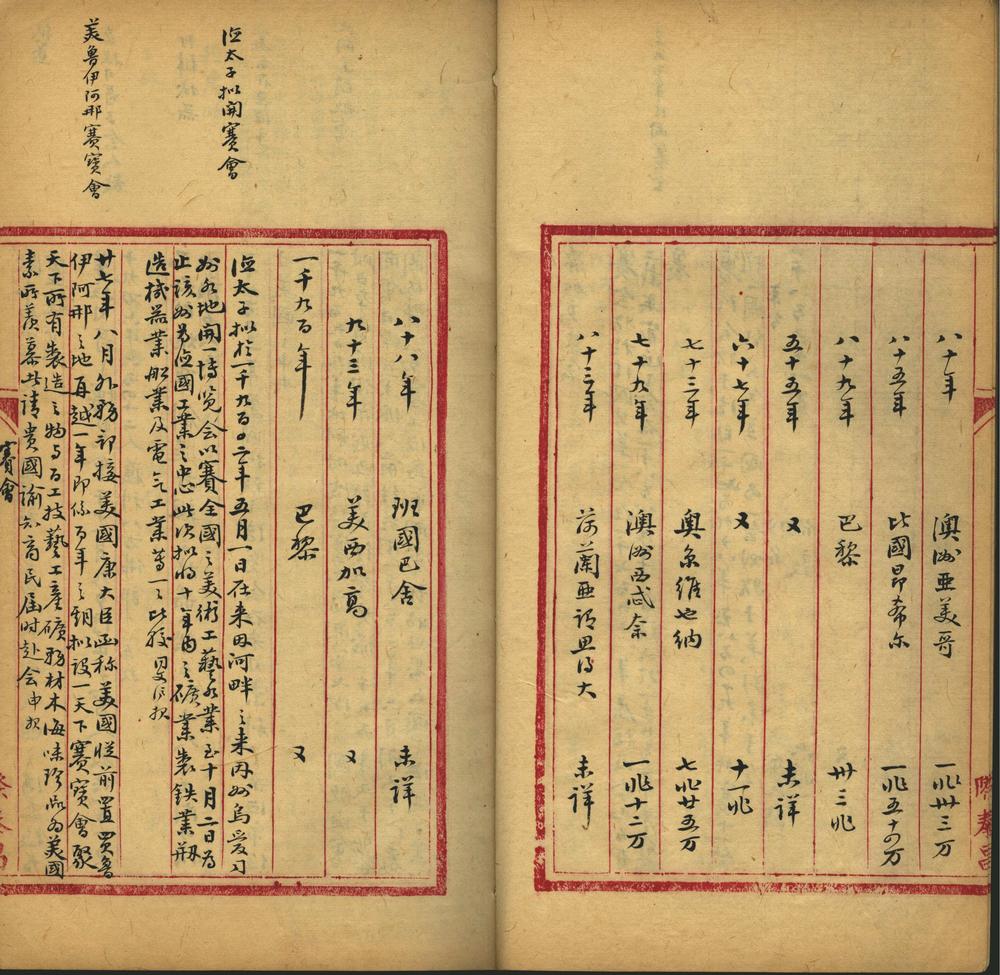 八十年　澳洲亜美哥　一兆卅三万
八十五年　比國昂希尔　一兆五十四万
八十九年　巴黎　卅三兆
五十五年　又　未詳
六十七年　又　十一兆
七十三年　奥京維也納　七兆廿五万
七十九年　澳洲西忒奈　一兆十二万
八十三年　荷蘭亜謂思得大　未詳
八十八年　班國巴舍　未詳
九十三年　美西加高　又
一千九百年　巴黎　又
德太子拟開賽會
德太子拟於一千九百〇二年五月一日在来因河畔之来因州烏爱刁
州各地開一博览会以賽全國之美術工藝各業至十月二日為
止該州为德國工業之中心此次拟将十年内之礦業製鉄業刱
造機器業船業及電气工業等一一比較
美魯伊阿那賽寳會
廿七年八月外務部接美國康大臣函称美國從前置買魯
伊阿那之地再越一年即係百年之期拟設一天下賽寳會聚
天下所有製造之物与百工技藝工產礦務材木海味珍品为美國
素所羨慕者請貴國諭知商民届时赴会申報
賽會